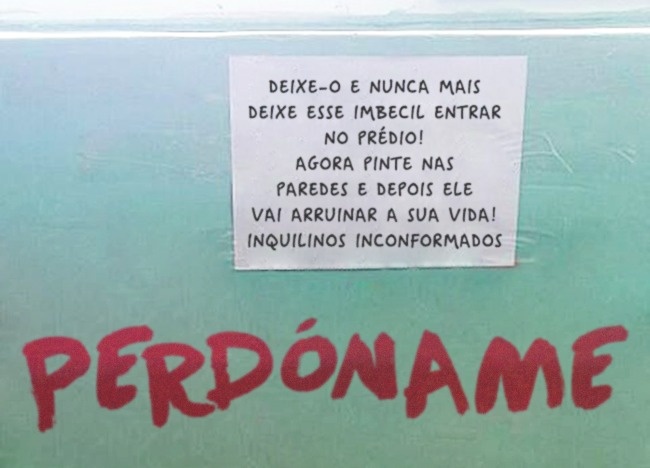 DEIXE-O E NUNCA MAIS
DEIXE ESSE IMBECIL ENTRAR
NO PRÉDIO!
AGORA PINTE NAS
PAREDES E DEPOIS ELE
VAI ARRUINAR A SUA VIDA!
INQUILINOS INCONFORMADOS
PERDÓNAME